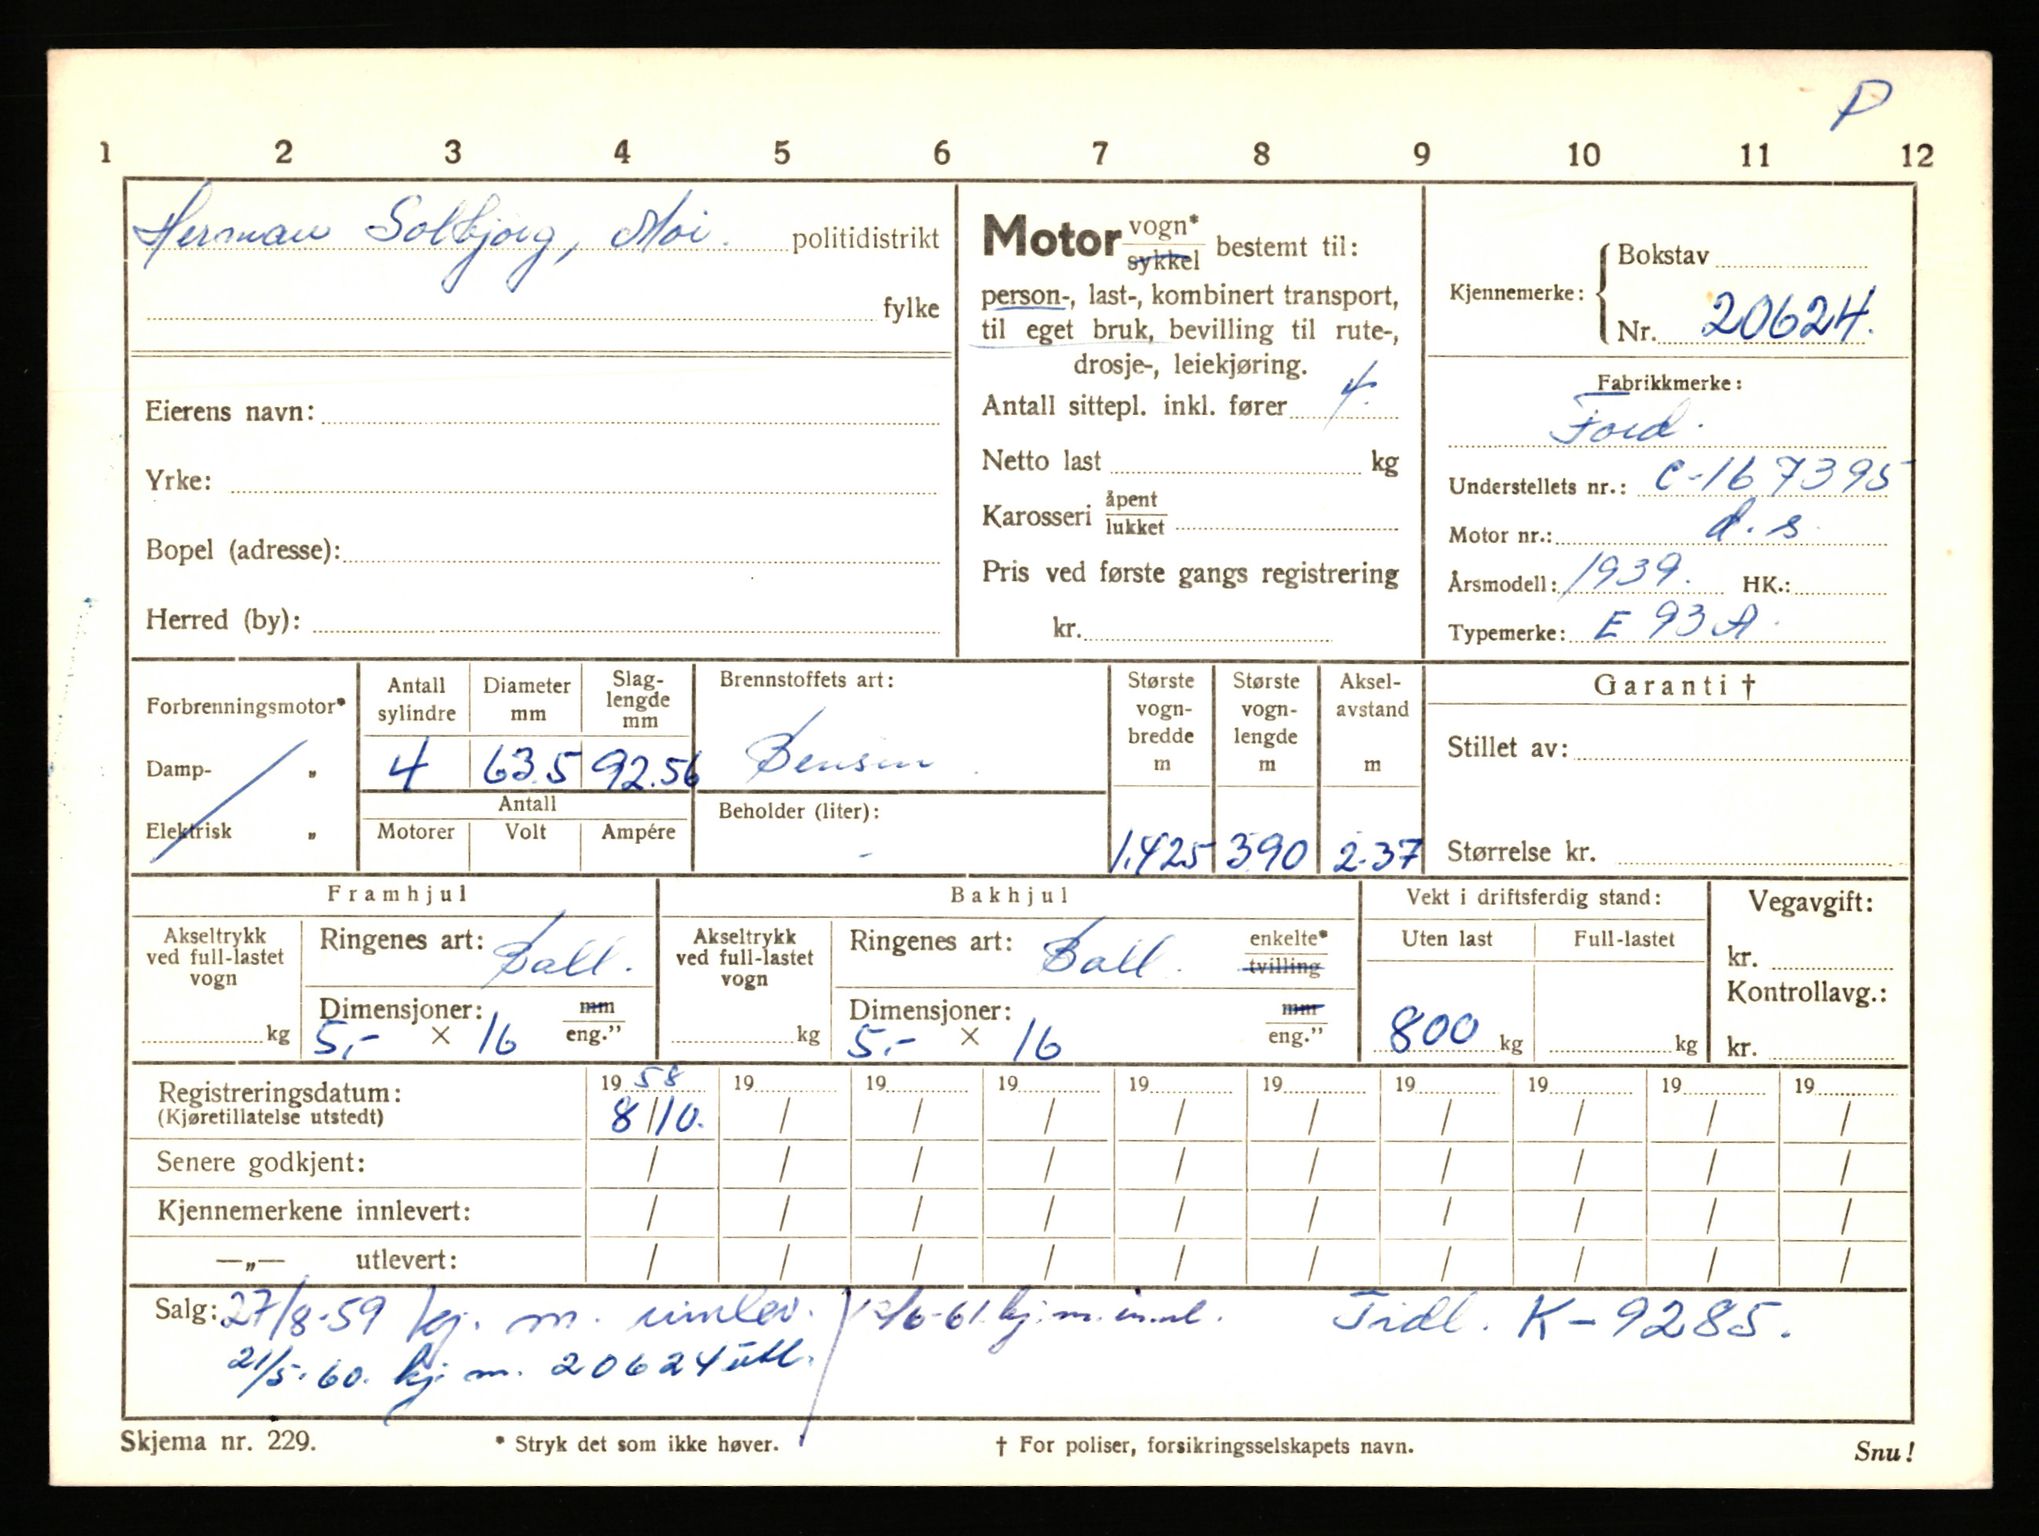 P
1 2 3 4 5 6 7 8 9 10 11 12
Herman Solbjørg, Moi. politidistrikt
fylke
Eierens navn:
Yrke:
Bopel (adresse):
Herred (by):
Motor vogn* sykkel bestemt til:
person-, last-, kombinert transport,
til eget bruk, bevilling til rute-,
drosje-, leiekjøring.
Antall sittepl. inkl. fører 4.
Netto last kg
Karosseri åpent lukket
Pris ved første gangs registrering
kr.
Kjennemerke: Bokstav
Nr. 20624.
Fabrikkmerke:
Ford.
Understellets nr.: C-167395
Motor nr.: d.s.
Årsmodell: 1939. HK.:
Typemerke: E 93 A.
Forbrenningsmotor*
Damp- „
Elektrisk „
Antall sylindre
4
Diameter mm
63.5
Slaglengde mm
92.56
Antall
Motorer Volt Ampére
Brennstoffets art:
Bensin
Beholder (liter):
-
Største vogn-bredde m
1.425
Største vogn-lengde m
390
Aksel-avstand m
2.37
Garanti †
Stillet av:
Størrelse kr.
Framhjul
Akseltrykk ved full-lastet vogn
kg
Ringenes art: Ball.
Dimensjoner: mm
5,- × 16 eng."
Bakhjul
Akseltrykk ved full-lastet vogn
kg
Ringenes art: Ball. enkelte* tvilling
Dimensjoner: mm
5,- × 16 eng."
Vekt i driftsferdig stand:
Uten last Full-lastet
800 kg kg
Vegavgift:
kr.
Kontrollavg.:
kr.
Registreringsdatum: 19 58 19 19 19 19 19 19 19 19 19
(Kjøretillatelse utstedt) 8/10. / / / / / / / / /
Senere godkjent: / / / / / / / / / /
Kjennemerkene innlevert: / / / / / / / / / /
—„— utlevert: / / / / / / / / / /
Salg: 27/8-59 kj. m. innlev. /6-61. kj. m. innl. Tidl. K-9285.
21/5-60. kj. m. 20624 utl.
Skjema nr. 229. * Stryk det som ikke høver. † For poliser, forsikringsselskapets navn. Snu!